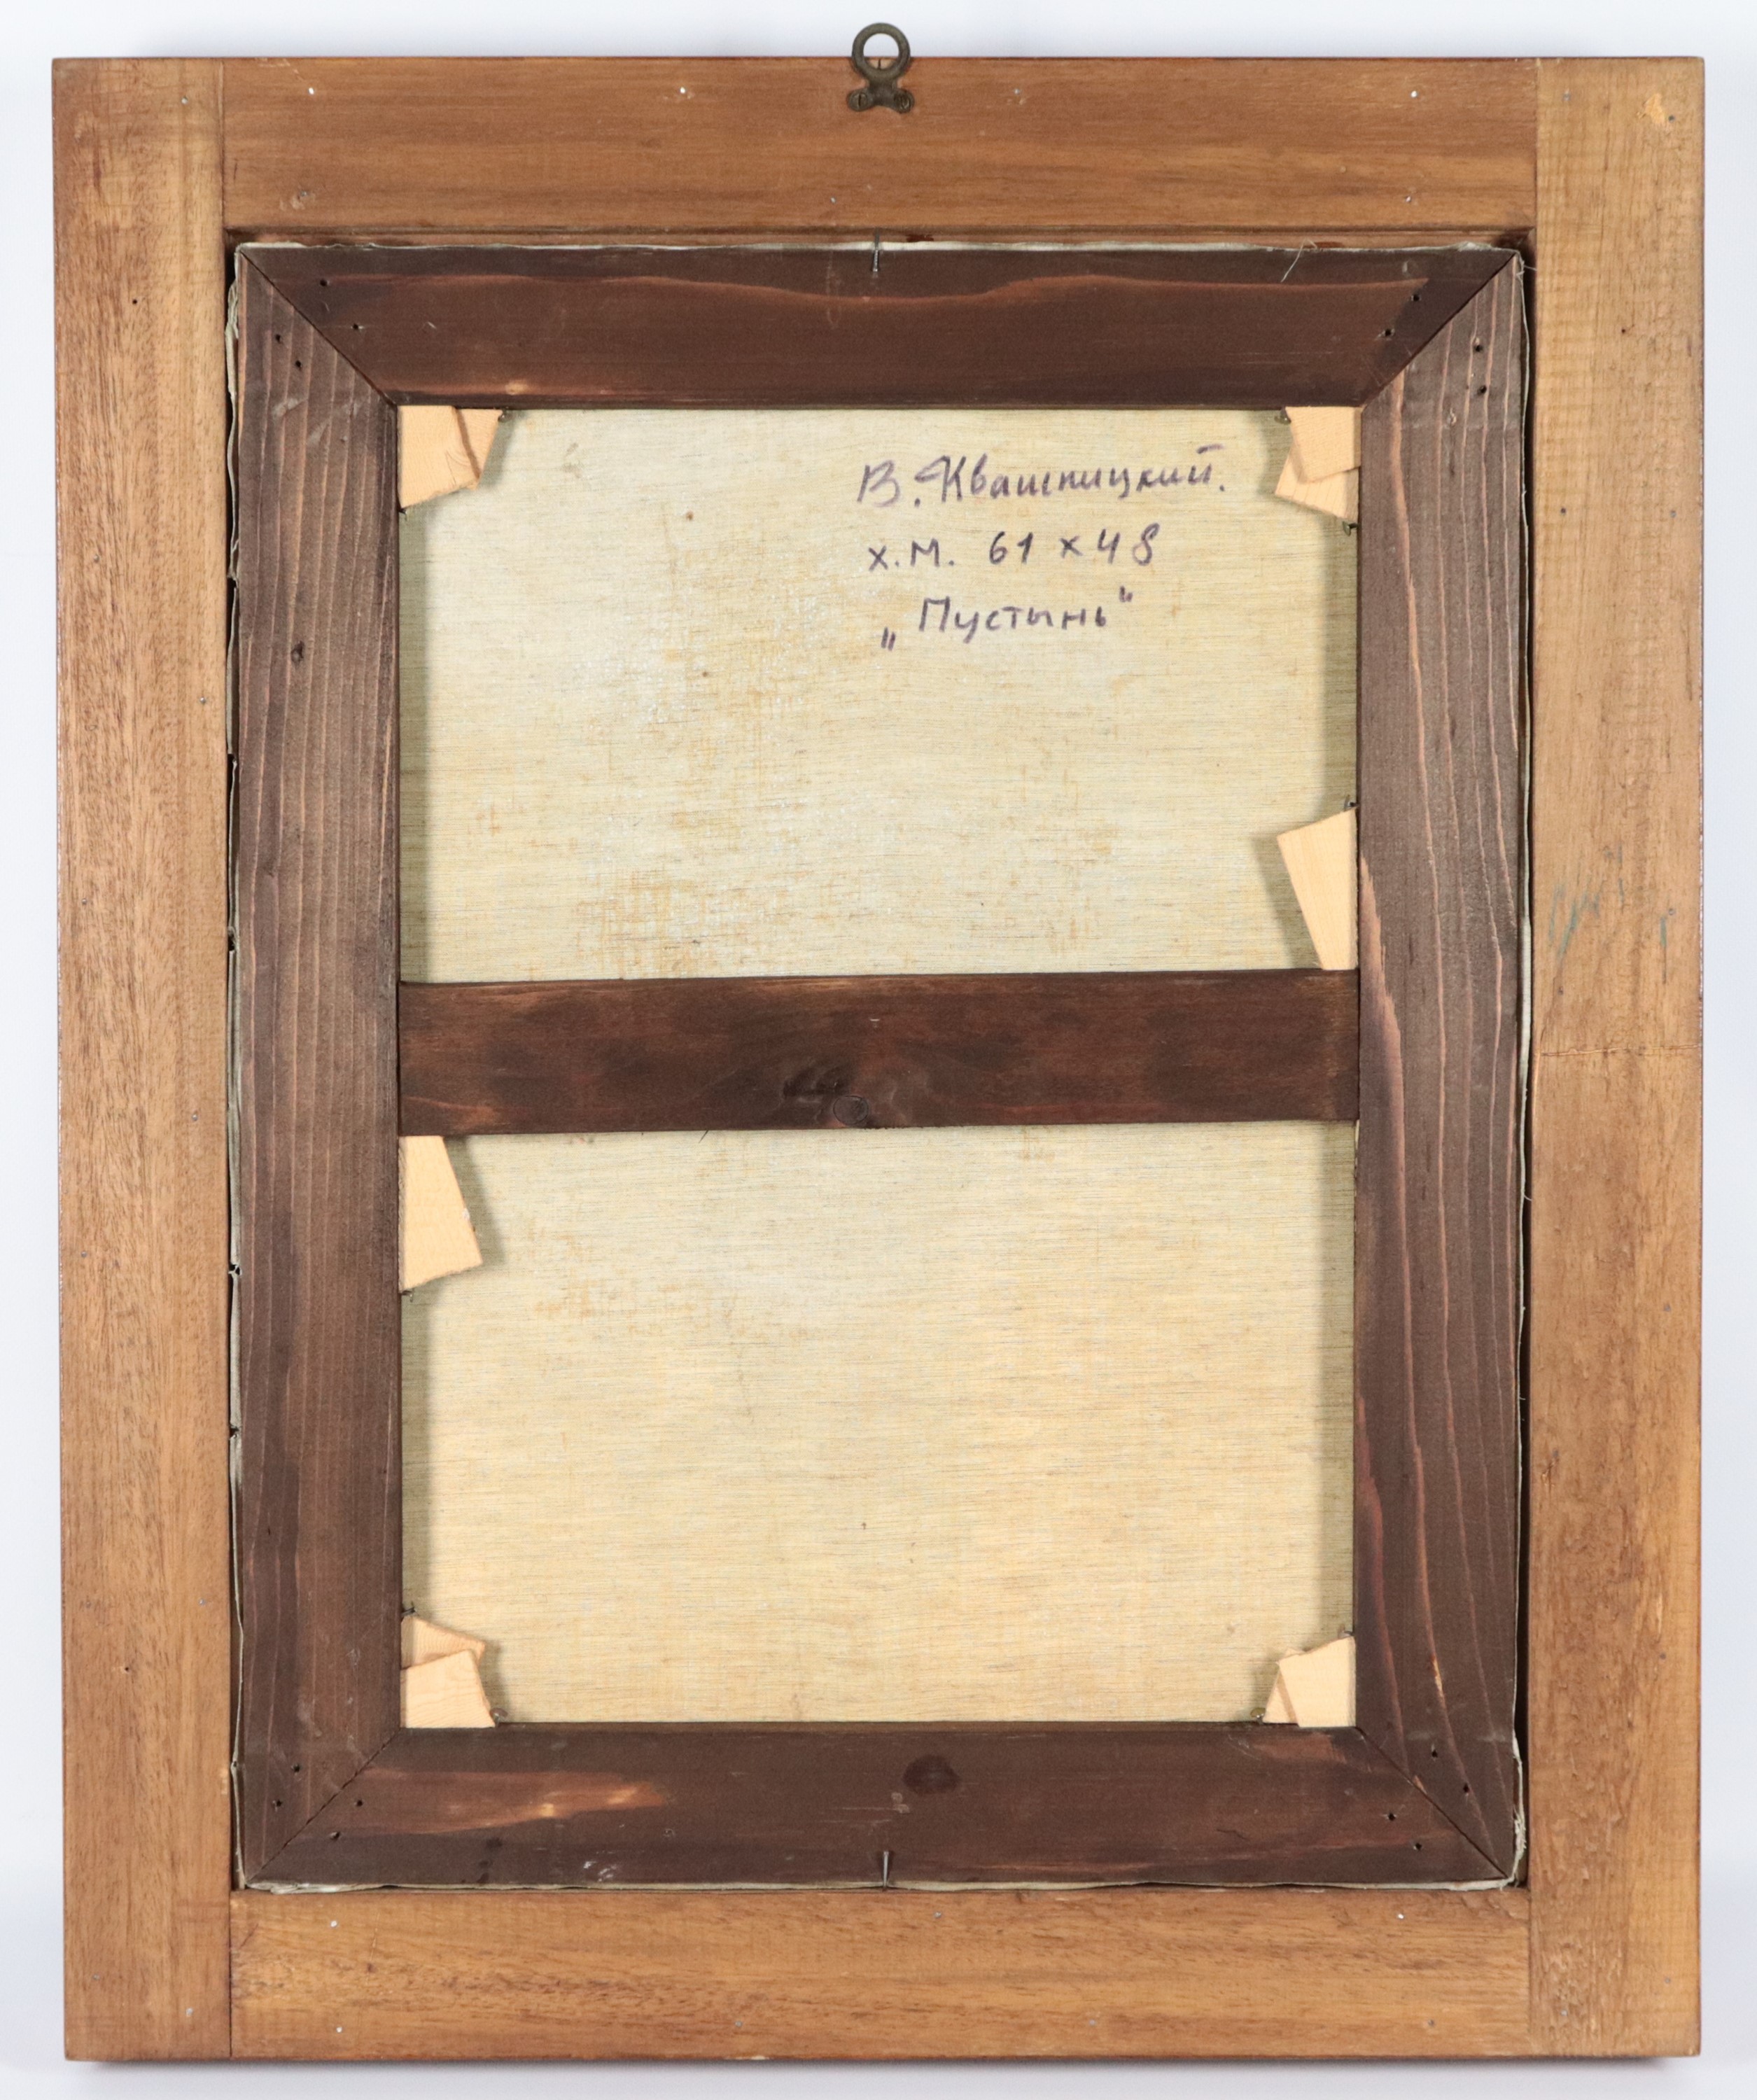 В. Квашницкий.
х.м. 61 х 48
„Пустынь"